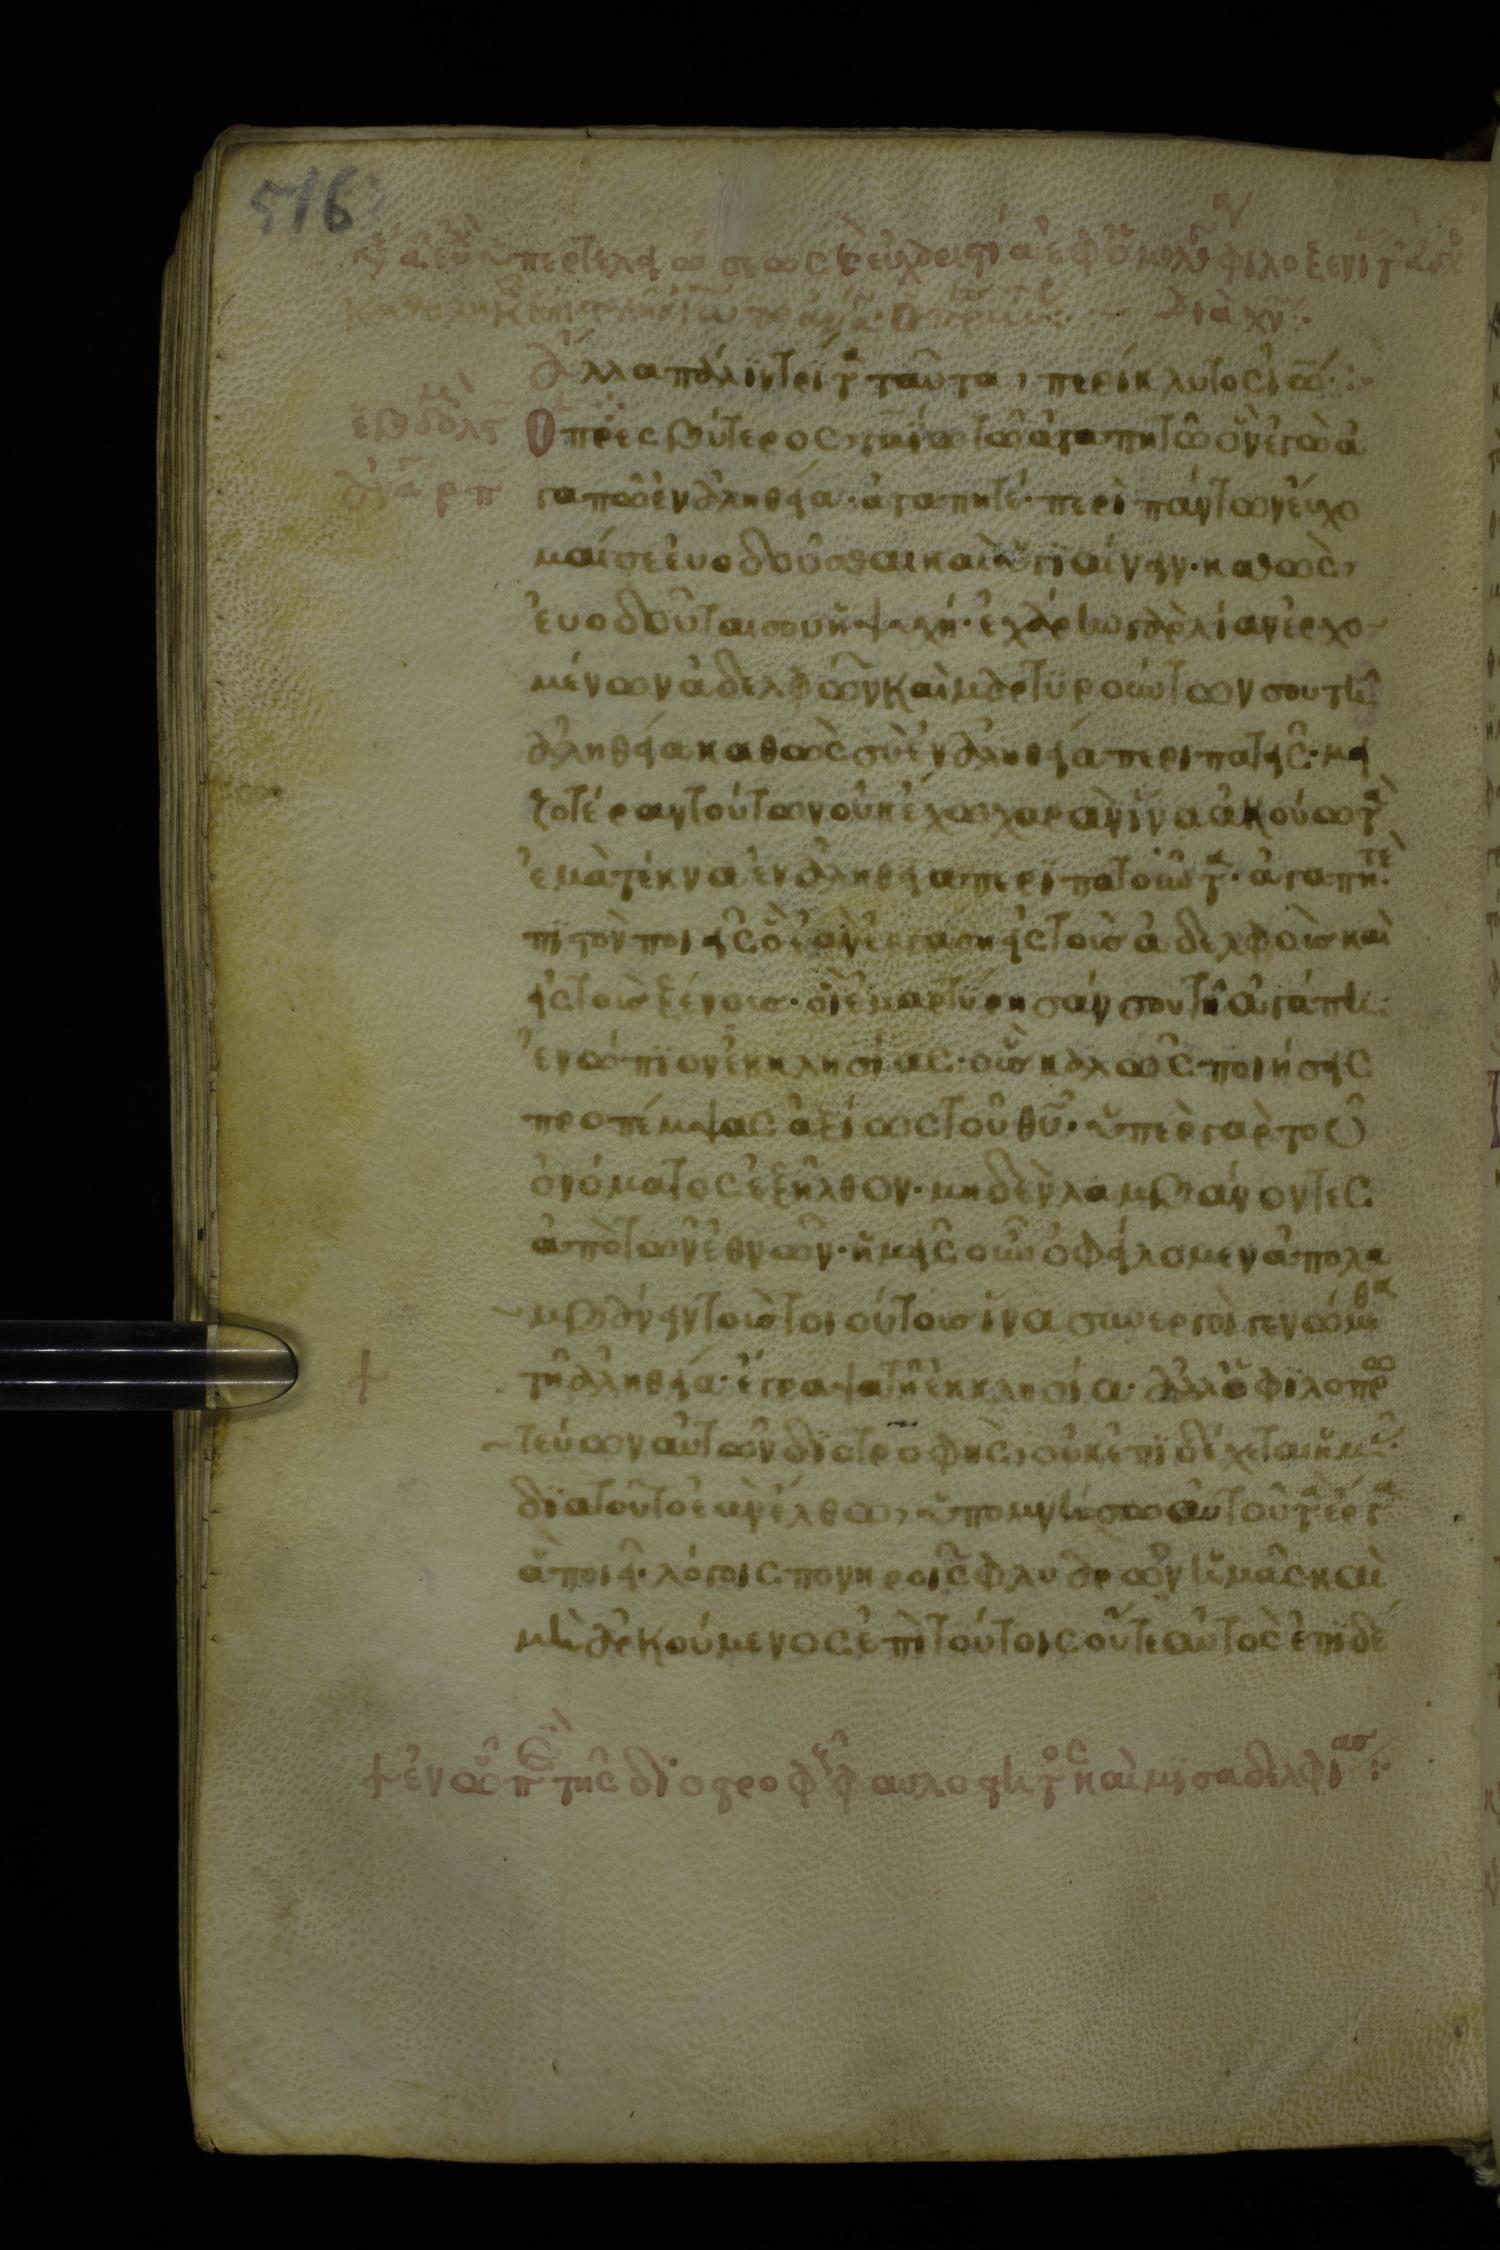 516
ὑπὲρ τελειώσεως εὐχαριστία ἐφ
διὰ χυ
Ἄλλα πάλιν τρίτα ταῦτα, περίκλυτος ἰω
Ὁ πρεσβύτερος, γαΐω τῶ ἀγαπητῶ ὃν ἐγὼ ἀ
γαπῶ ἐν ἀληθεία· ἀγαπητέ· περὶ πάντων εὔχο
μαί σε εὐοδοῦσθαι καὶ ὑγιαίνειν· καθὼς,
εὐοδοῦταί σου ἡ ψυχή· ἐχάρην γὰρ λίαν ἐρχο
μένων ἀδελφῶν καὶ μαρτυρούντων σου τῆ
ἀληθεία καθὼς σὺ ἐν ἀληθεία περιπατεῖς· μει
ζοτέραν τούτων οὐκ ἔχω χαρὰν ἵνα ἀκούω τὰ
ἐμὰ τέκνα ἐν ἀληθεία περιπατοῦντα· ἀγαπητὲ·
πιστὸν ποιεῖς ὃ ἐὰν ἐργάση εἰς τοὺς ἀδελφοὺς καὶ
εἰς τοὺς ξένους· οἳ ἐμαρτύρησάν σου τῆ ἀγάπη
ἐνώπιον ἐκκλησίας· οὓς καλῶς ποιήσεις
προπέμψας ἀξίως τοῦ θυ· ὑπὲρ γὰρ τοῦ
ὀνόματος ἐξῆλθον· μηδὲν λαμβάνοντες
ἀπὸ τῶν ἐθνῶν· ἡμεῖς οὖν ὀφείλομεν ἀπολα
μβάνειν τοὺς τοιούτους ἵνα συνεργοὶ γενώμεθα
τῆ ἀληθεία· ἔγραψα τῆ ἐκκλησία· ἀλλ' ὁ φιλοπρω
τεύων αὐτῶν διοτροφὴς, οὐκ ἐπιδέχεται ἡμᾶς·
διὰ τοῦτο ἐὰν ἔλθω, ὑπομνήσω αὐτοῦ τὰ ἔργα
ἃ ποιεῖ· λόγοις πονηροῖς φλυαρῶν ἡμᾶς καὶ
μὴ ἀρκούμενος ἐπὶ τούτοις οὔτε αὐτὸς ἐπιδέ
+ ἐν ὧ τῆς διοτροφ καὶ μισαδελφίας